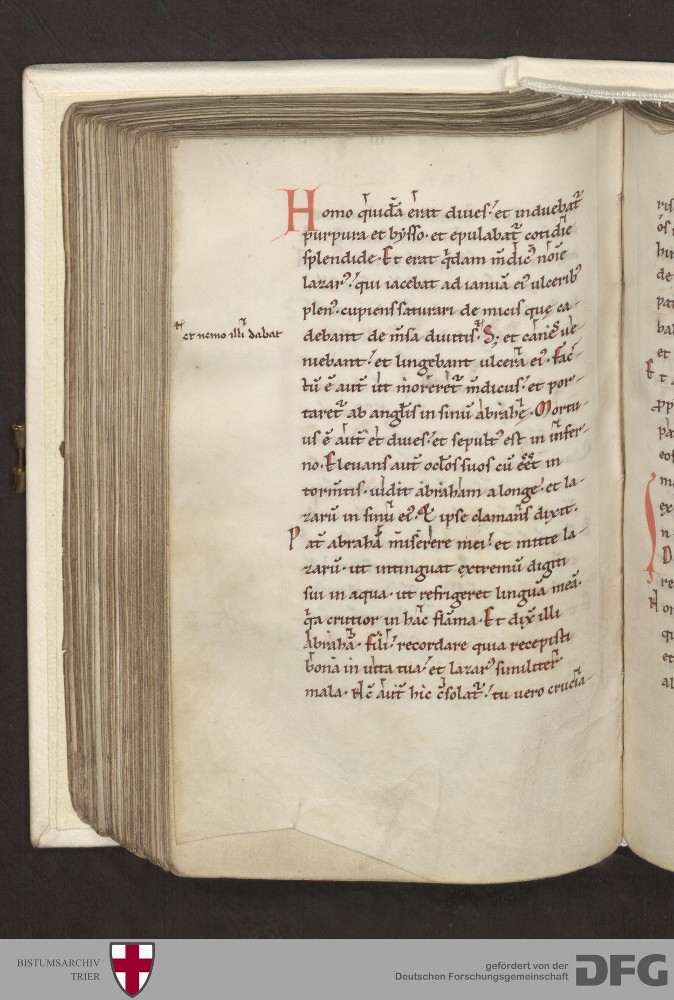 Homo quidā erat diues. et induebat᷑
purpura et bẏsso. et epulabat᷑ cotidie
splendide. Et erat q̇dam mdicꝰ noīe
lazarꝰ. qui iacebat ad ianuā eiꝰ ulceribꝰ
plenꝰ. cupiens saturari de micis quę ca-
et nemo illi dabat
debant de msa diuitis. S; et canes ue-
niebant. et lingebant ulcera eiꝰ. Fac-
tū ē autē ut moreret᷑ mdicus. et por-
taret᷑ ab anglis in sinū abrahę. Mortu-
us ē aūt et diues. et sepultꝰ est in infer-
no. Eleuans aut̄ oclos suos cū eēt in
tormtis. uidit abraham a longe. et la-
zarū in sinu eiꝰ. & ipse clamans dixit.
Pat̄ abrahā miserere mei. et mitte la-
zarū. ut intinguat extremū digiti
sui in aqua. ut refrigeret linguā meā.
q̇a crucior in hac flāma. Et dix̄ illi
Abrahā. Fili. recordare quia recepisti
bona in uita tua. et lazarꝰ similiter
mala. Nc̄ aut̄ hic c̄solat᷑. tu uero crucia-
BISTUMSARCHIV
TRIER
gefördert von der
Deutschen Forschungsgemeinschaft
DFG